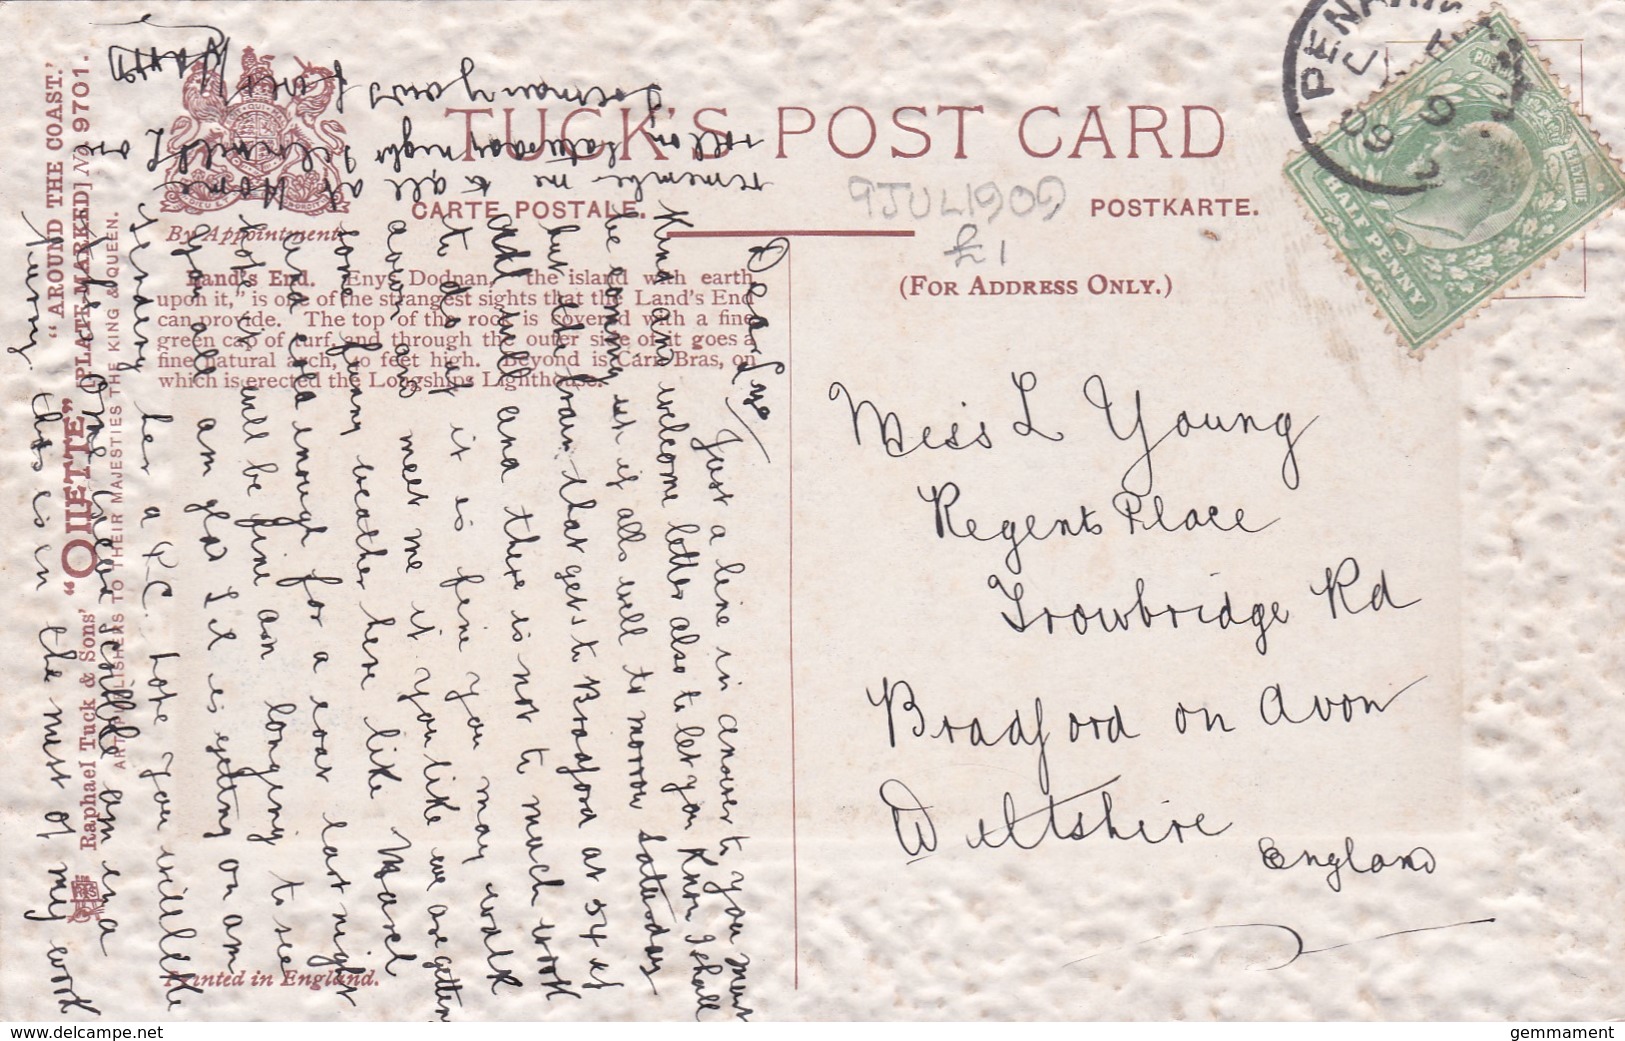 TUCK'S POST CARD
CARTE POSTALE.
POSTKARTE.
By Appointment.
(FOR ADDRESS ONLY.)
9 JUL 1909
£1
PENARTH
JY
9
09
POSTAGE
REVENUE
HALF PENNY
Land's End. Enys Dodnan, "the island with earth
upon it," is one of the strangest sights that the Land's End
can provide. The top of the rock is covered with a fine
green cap of turf, and through the outer side of it goes a
fine natural arch, 40 feet high. Beyond is Carn Bras, on
which is erected the Longships Lighthouse.
"AROUND THE COAST."
"OILETTE" [PLATE-MARKED] No 9701.
Raphael Tuck & Sons'
ART PUBLISHERS TO THEIR MAJESTIES THE KING & QUEEN.
Printed in England.
Miss L Young
Regent Place
Trowbridge Rd
Bradford on Avon
Wiltshire
England
Dear Lye
Just a line in answer to your most
kind and welcome letter also to let you know I shall
be coming if alls well to morrow Saturday
but the train that gets to Bradford at
Addl will and there is not to much work
to do if it is fine you may walk
down and meet me if you like we are getting
some funny weather here like March
and cold enough for a coat last night
hope it will be fine am longing to see
you all am glad Lil is getting on am
sending her a P.C. hope you will like
excuse scribble am in a
hurry this is in the midst of my work
remember me to all at Home
roll on Saturday night